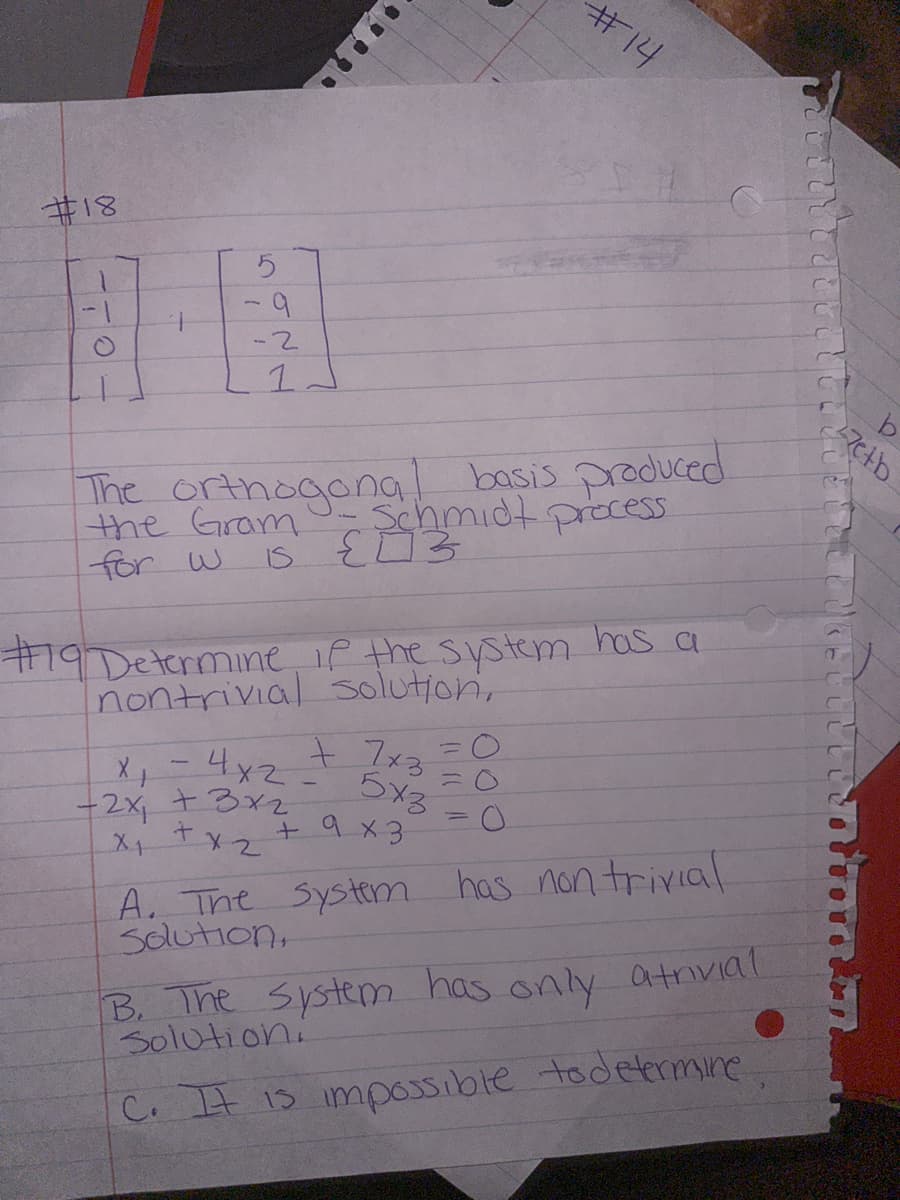 #14
#18
1
-1
0
1
,
5
-9
-2
1
The orthogonal basis produced
the Gram - Schmidt process
for W is {□}
#19 Determine if the system has a
nontrivial solution.
x₁ - 4x₂ + 7x₃ = 0
-2x₁ + 3x₂ - 5x₃ = 0
x₁ + x₂ + 9x₃ = 0
A. The system has nontrivial
solution.
B. The system has only a trivial
solution.
C. It is impossible to determine.